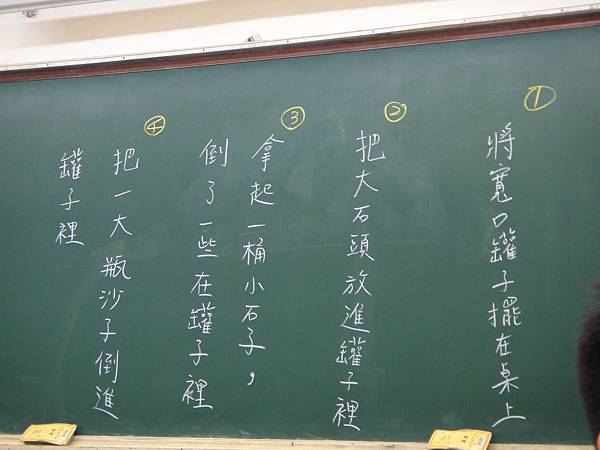 ①
將寬口罐子擺在桌上
②
把大石頭放進罐子裡
③
拿起一桶小石子，
倒了一些在罐子裡
④
把一大瓶沙子倒進
罐子裡